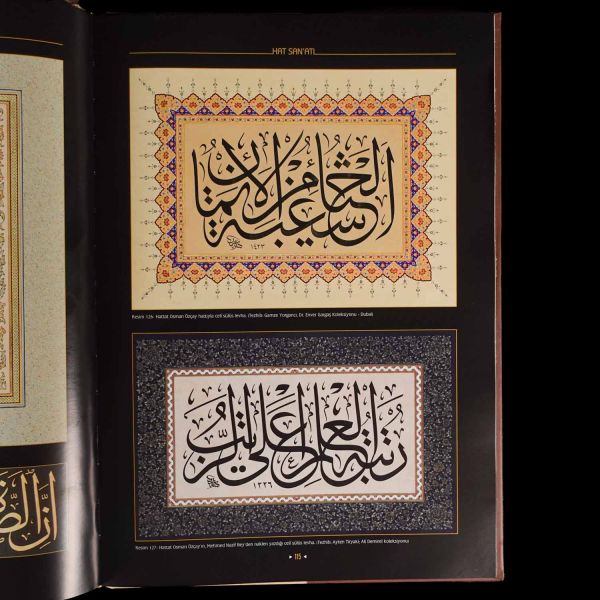 HAT SAN'ATI
الحياء شعبة من الايمان
١٤٢٣
Resim 126- Hattat Osman Özçay hattıyla celî sülüs levha. (Tezhib: Gamze Yorgancı; Dr. Enver Gargaş Koleksiyonu - Dubai)
رتبة العلم اعلى الرتب
١٣٢٦
Resim 127- Hattat Osman Özçay'ın, Mehmed Nazif Bey'den naklen yazdığı celî sülüs levha. (Tezhib: Ayten Tiryaki; Ali Demirel koleksiyonu)
115
اِنَّ